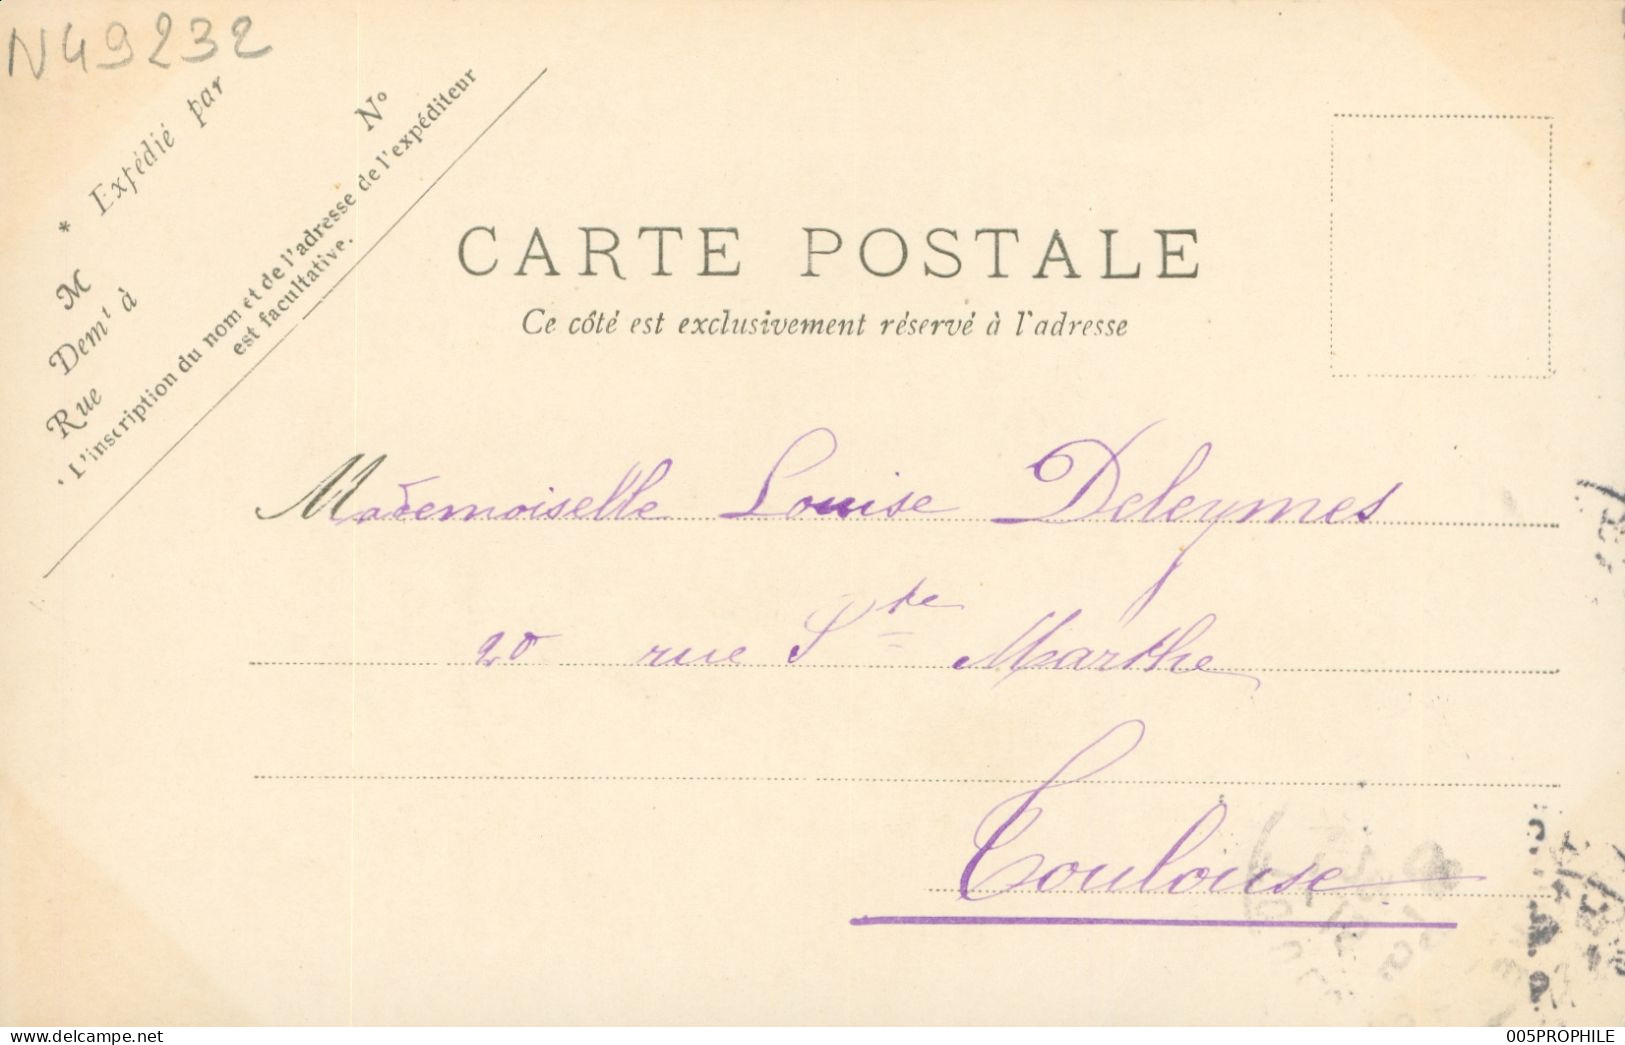 N49232
* Expédié par
M
Demt à
Rue
N°
* L'inscription du nom et de l'adresse de l'expéditeur
est facultative.
CARTE POSTALE
Ce côté est exclusivement réservé à l'adresse
Mademoiselle Louise Deleymes
20 rue Ste Marthe
Toulouse
www.delcampe.net
005PROPHILE